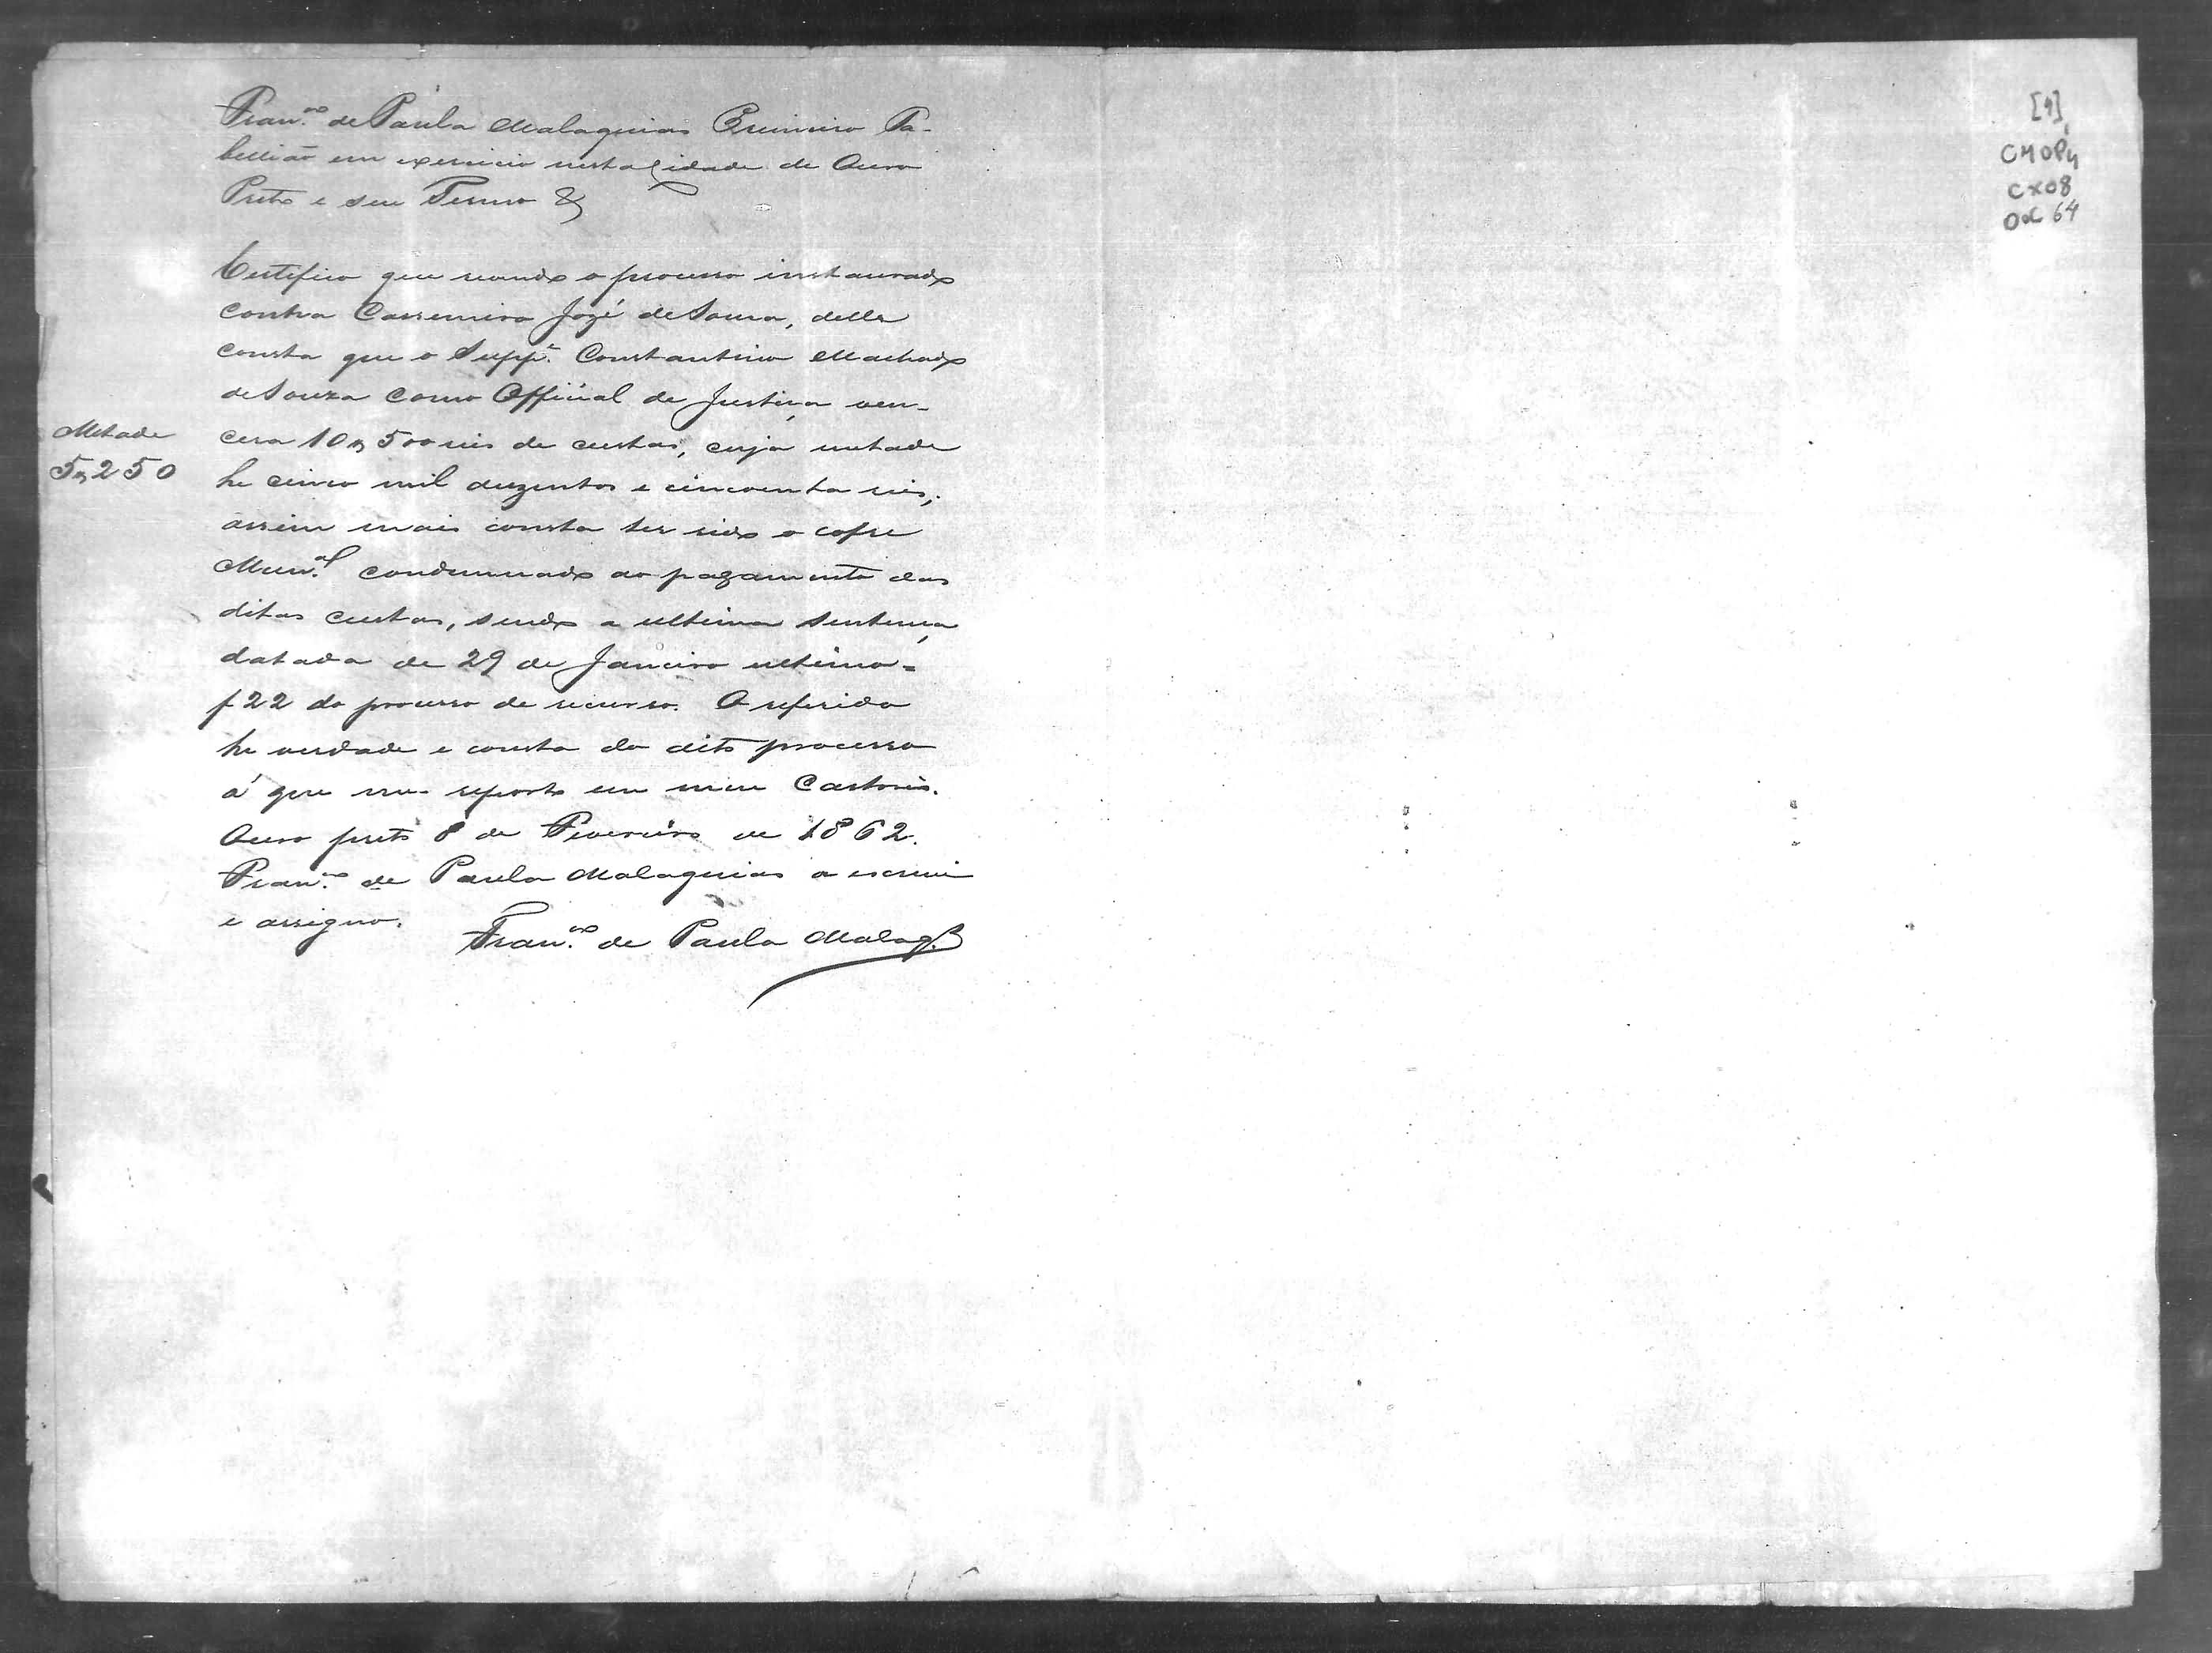 Fran.co de Paula Malaquias Primeiro Ta-
bellião em exercicio nesta Cidade de Ouro
Preto e seu Termo &
Certifico que revendo o processo instaurado
contra Cassemiro Jozé de Souza, delle
consta que o Supp.e Constantino Machado
de Souza como Official de Justiça ven-
cera 10$500 reis de custas, cuja metade
he cinco mil duzentos e cincoenta reis;
Metade
5$250
assim mais consta ter sido o cofre
Mun.al condemnado ao pagamento das
ditas custas, sendo a ultima sentença
datada de 29 de Janeiro ultimo =
f 22 do processo de recurso. O referido
he verdade e consta do dito processo
á que me reporto em meu Cartorio.
Ouro preto 8 de Fevereiro de 1862.
Fran.co de Paula Malaquias o escrevi
e assigno.
Fran.co de Paula Malaq.s
[1]
CMOP
CX08
DOC 64